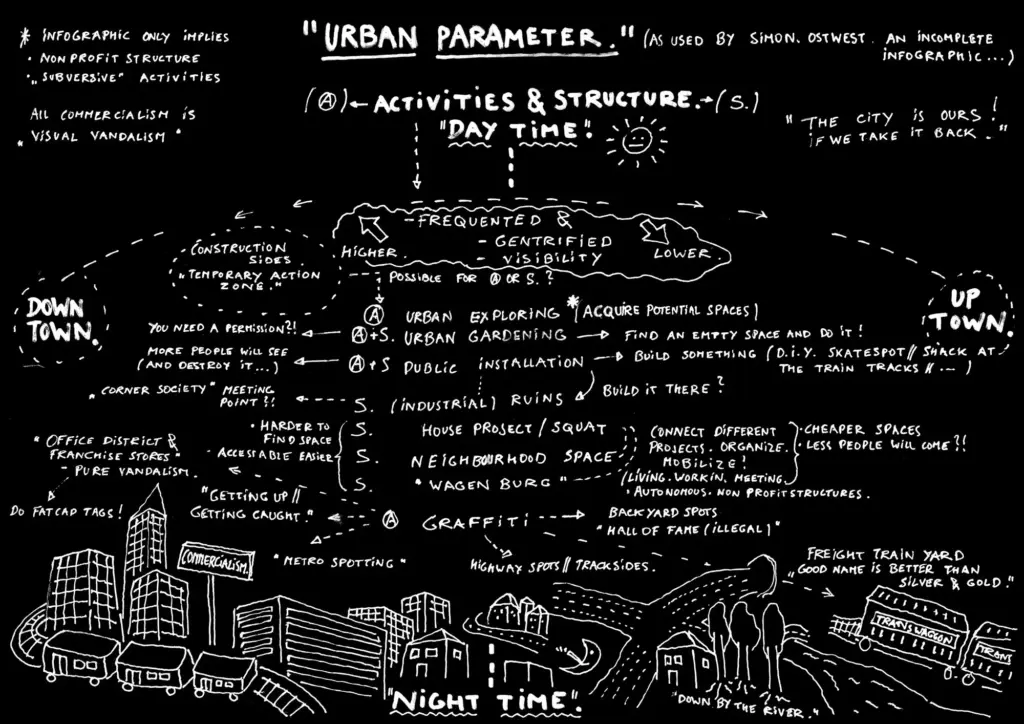 "URBAN PARAMETER."
(AS USED BY SIMON. OSTWEST. AN INCOMPLETE
INFOGRAPHIC...)
* INFOGRAPHIC ONLY IMPLIES
· NON PROFIT STRUCTURE
· „SUBVERSIVE" ACTIVITIES
All COMMERCIALISM IS
„ VISUAL VANDALISM "
(A) ← ACTIVITIES & STRUCTURE. → (S.)
"DAY TIME".
" THE CITY IS OURS !
IF WE TAKE IT BACK . "
- FREQUENTED &
- GENTRIFIED
- VISIBILITY
HIGHER.
LOWER.
- CONSTRUCTION
SIDES.
„TEMPORARY ACTION
ZONE."
POSSIBLE FOR A OR S. ?
DOWN
TOWN.
UP
TOWN.
A URBAN EXPLORING * (ACQUIRE POTENTIAL SPACES)
YOU NEED A PERMISSION?! ← A+S. URBAN GARDENING → FIND AN EMPTY SPACE AND DO IT !
MORE PEOPLE WILL SEE
(AND DESTROY IT...) ← A+S PUBLIC INSTALLATION → BUILD SOMETHING (D.I.Y. SKATESPOT // SHACK AT
THE TRAIN TRACKS // ... )
„CORNER SOCIETY" MEETING
POINT?!
S. (INDUSTRIAL) RUINS
BUILD IT THERE ?
· HARDER TO
FIND SPACE
- ACCESTABLE EASIER
S. HOUSE PROJECT / SQUAT
S. NEIGHBOURHOOD SPACE
S. "WAGEN BURG"
CONNECT DIFFERENT
PROJECTS. ORGANIZE.
MOBILIZE!
(LIVING. WORKIN. MEETING
· AUTONOMOUS. NON PROFIT STRUCTURES.
· CHEAPER SPACES
· LESS PEOPLE WILL COME ?!
" OFFICE DISTRICT &
FRANCHISE STORES"
- PURE VANDALISM.
DO FATCAP TAGS!
"GETTING UP //
GETTING CAUGHT."
A GRAFFITI
BACKYARD SPOTS
" HALL OF FAME (ILLEGAL) "
" METRO SPOTTING "
HIGHWAY SPOTS // TRACKSIDES.
FREIGHT TRAIN YARD
„GOOD NAME IS BETTER THAN
SILVER & GOLD."
COMMERCIALISM.
TRANSWAGGON
TRANS
"DOWN BY THE RIVER."
"NIGHT TIME".